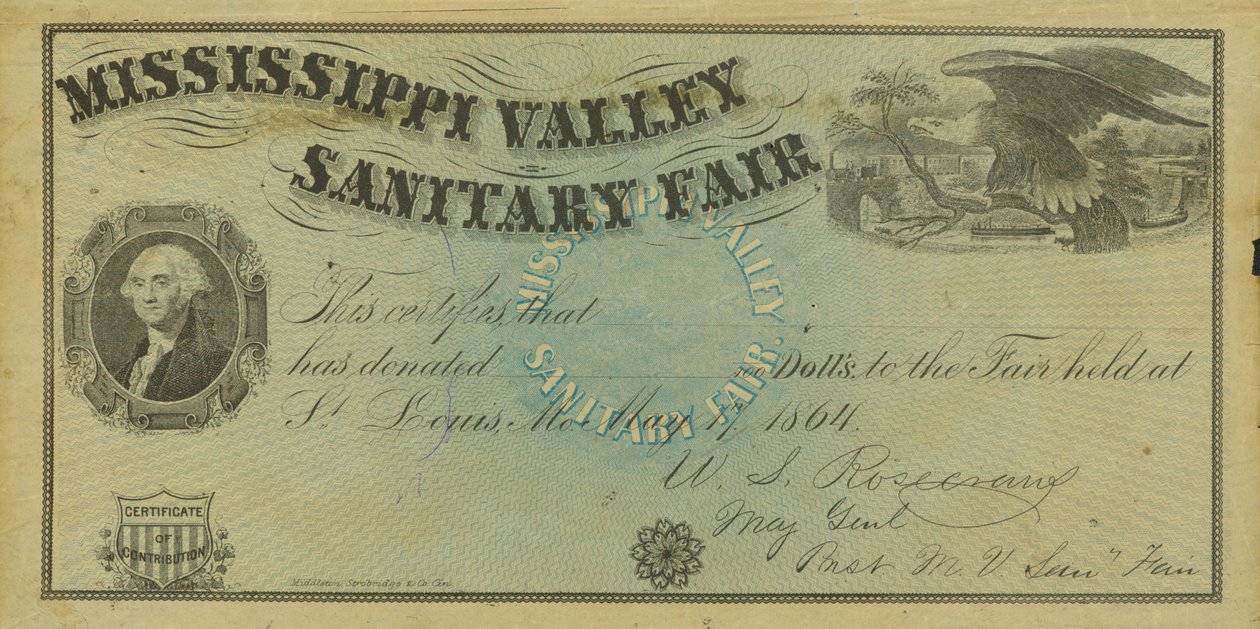 MISSISSIPPI VALLEY
SANITARY FAIR
MISSISSIPPI VALLEY
SANITARY FAIR.
This certifies, that
has donated /100 Doll's. to the Fair held at
St Louis, Mo. May 17, 1864.
W. S. Rosecrans
Maj Genl
Prest M. V San'y Fair
CERTIFICATE
OF
CONTRIBUTION
Middleton, Strobridge & Co. Cin.